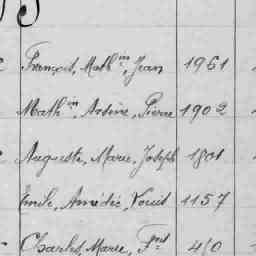 François, Math.in, Jean 1961
Math.in, Ardine, Pierre 1902
Auguste, Marie, Joseph 1801
Emile, Amédée, Louis 1157
Charles, Marie, F.ois 410